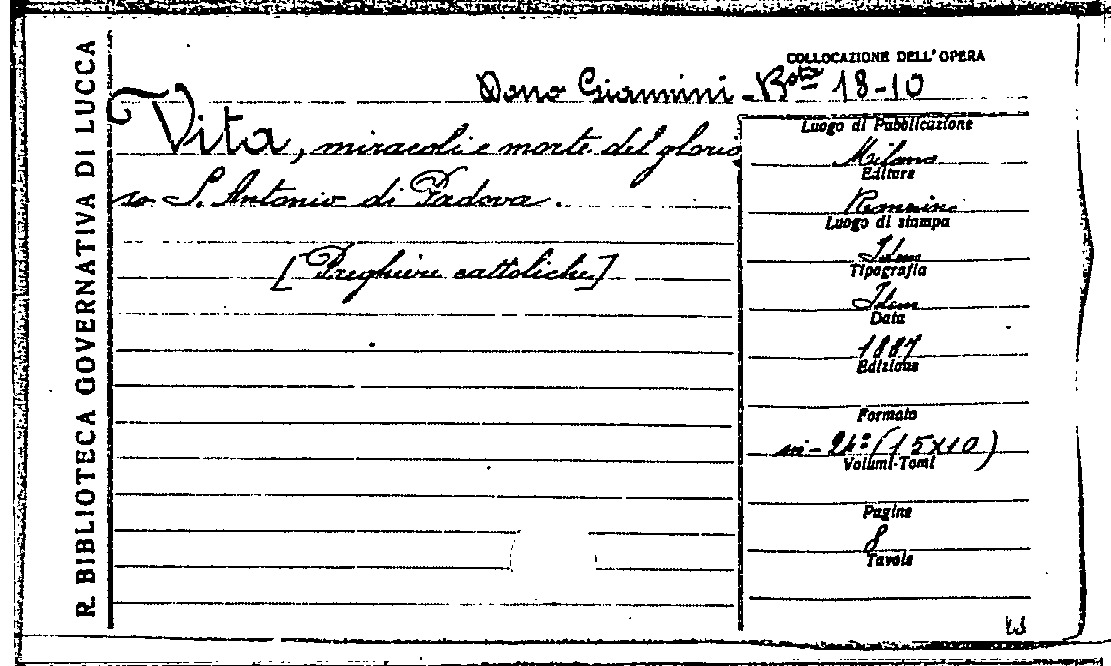 R. BIBLIOTECA GOVERNATIVA DI LUCCA
COLLOCAZIONE DELL' OPERA
Dono Giannini - Bta 18-10
Vita, miracoli e morte del glorio
so S. Antonio di Padova.
[Preghiere cattoliche]
Luogo di Pubblicazione
Milano
Editore
Luogo di stampa
Idem
Tipografia
Idem
Data
1887
Edizione
Formato
in-24º (15X10)
Volumi-Tomi
Pagine
8
Tavole